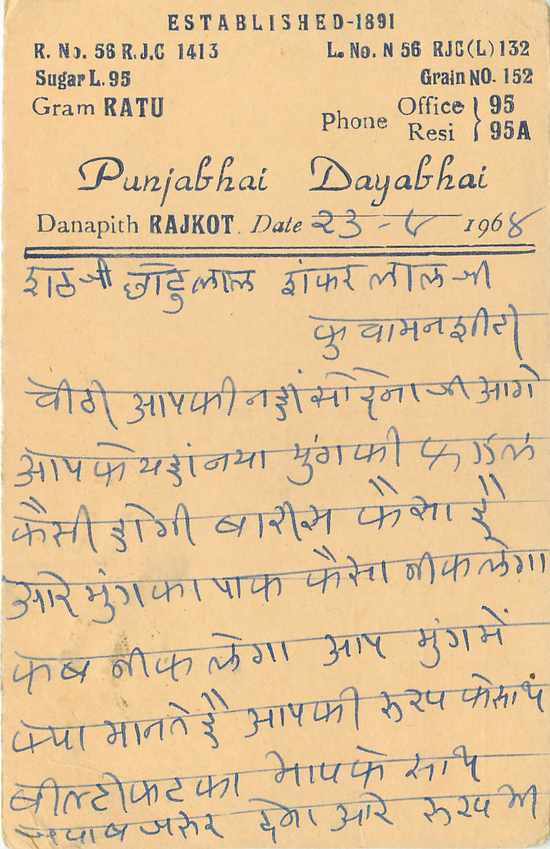 ESTABLISHED-1891
R. No. 56 R.J.C 1413 L. No. N 56 RJC(L) 132
Sugar L. 95 Grain NO. 152
Gram RATU Phone Office 95
Resi 95A
Punjabhai Dayabhai
Danapith RAJKOT. Date 23 - 1968
शठ श्री छोटुलाल शंकर लाल जी
कुचामन शीटी
चीठी आपकी नहीं सो देना जी आगे
आपके यहां नया मुंग की
कैसी होगी बारीस कैसा है
ओर मुंग का पाक कैसा नीकलेगा
कब नीकलेगा आप मुंग में
क्या मानते है आपकी रुख के साथ
बील्टी कट का भाप के साथ
जवाब जरुर देगा ओर रुख